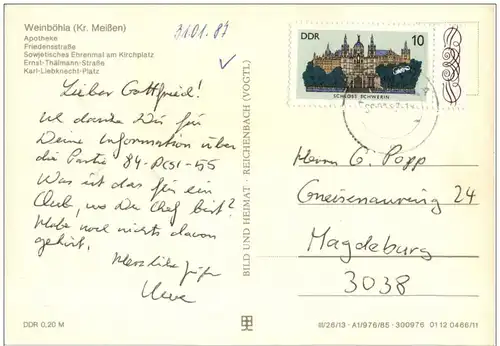 Weinböhla (Kr. Meißen)
Apotheke
Friedensstraße
Sowjetisches Ehrenmal am Kirchplatz
Ernst-Thälmann-Straße
Karl-Liebknecht-Platz
31.01.87
Lieber Gottfried!
danke Dir für
Deine Information über
die Partie 84-PCSI-55
Was ist das für ein
Club, wo Du Chef bist?
Habe noch nichts davon
gehört.
Herzliche Grüße
Uwe
DDR 0,20 M
BILD UND HEIMAT · REICHENBACH (VOGTL)
DDR
10
SCHLOSS SCHWERIN
Herrn G. Popp
Gneisenauring 24
Magdeburg
3038
III/26/13 · A1/976/85 · 300976 01 12 0466/11